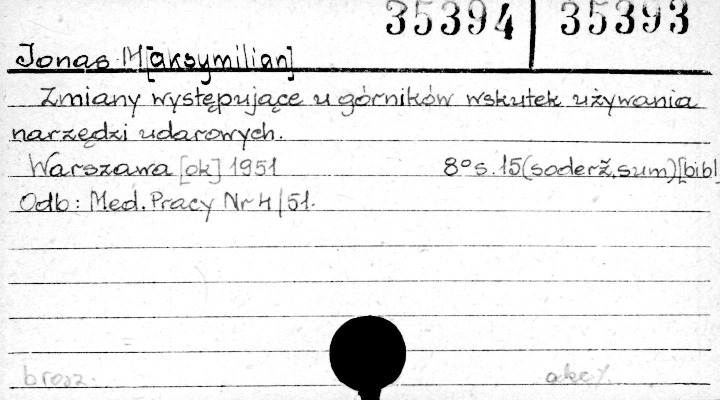 35394 35393
Jonas M[aksymilian]
Zmiany występujące u górników wskutek używania
narzędzi udarowych.
Warszawa [ok] 1951 8° s. 15 (soderž, sum) [bibl
Odb: Med. Pracy Nr 4/51.
brosz.